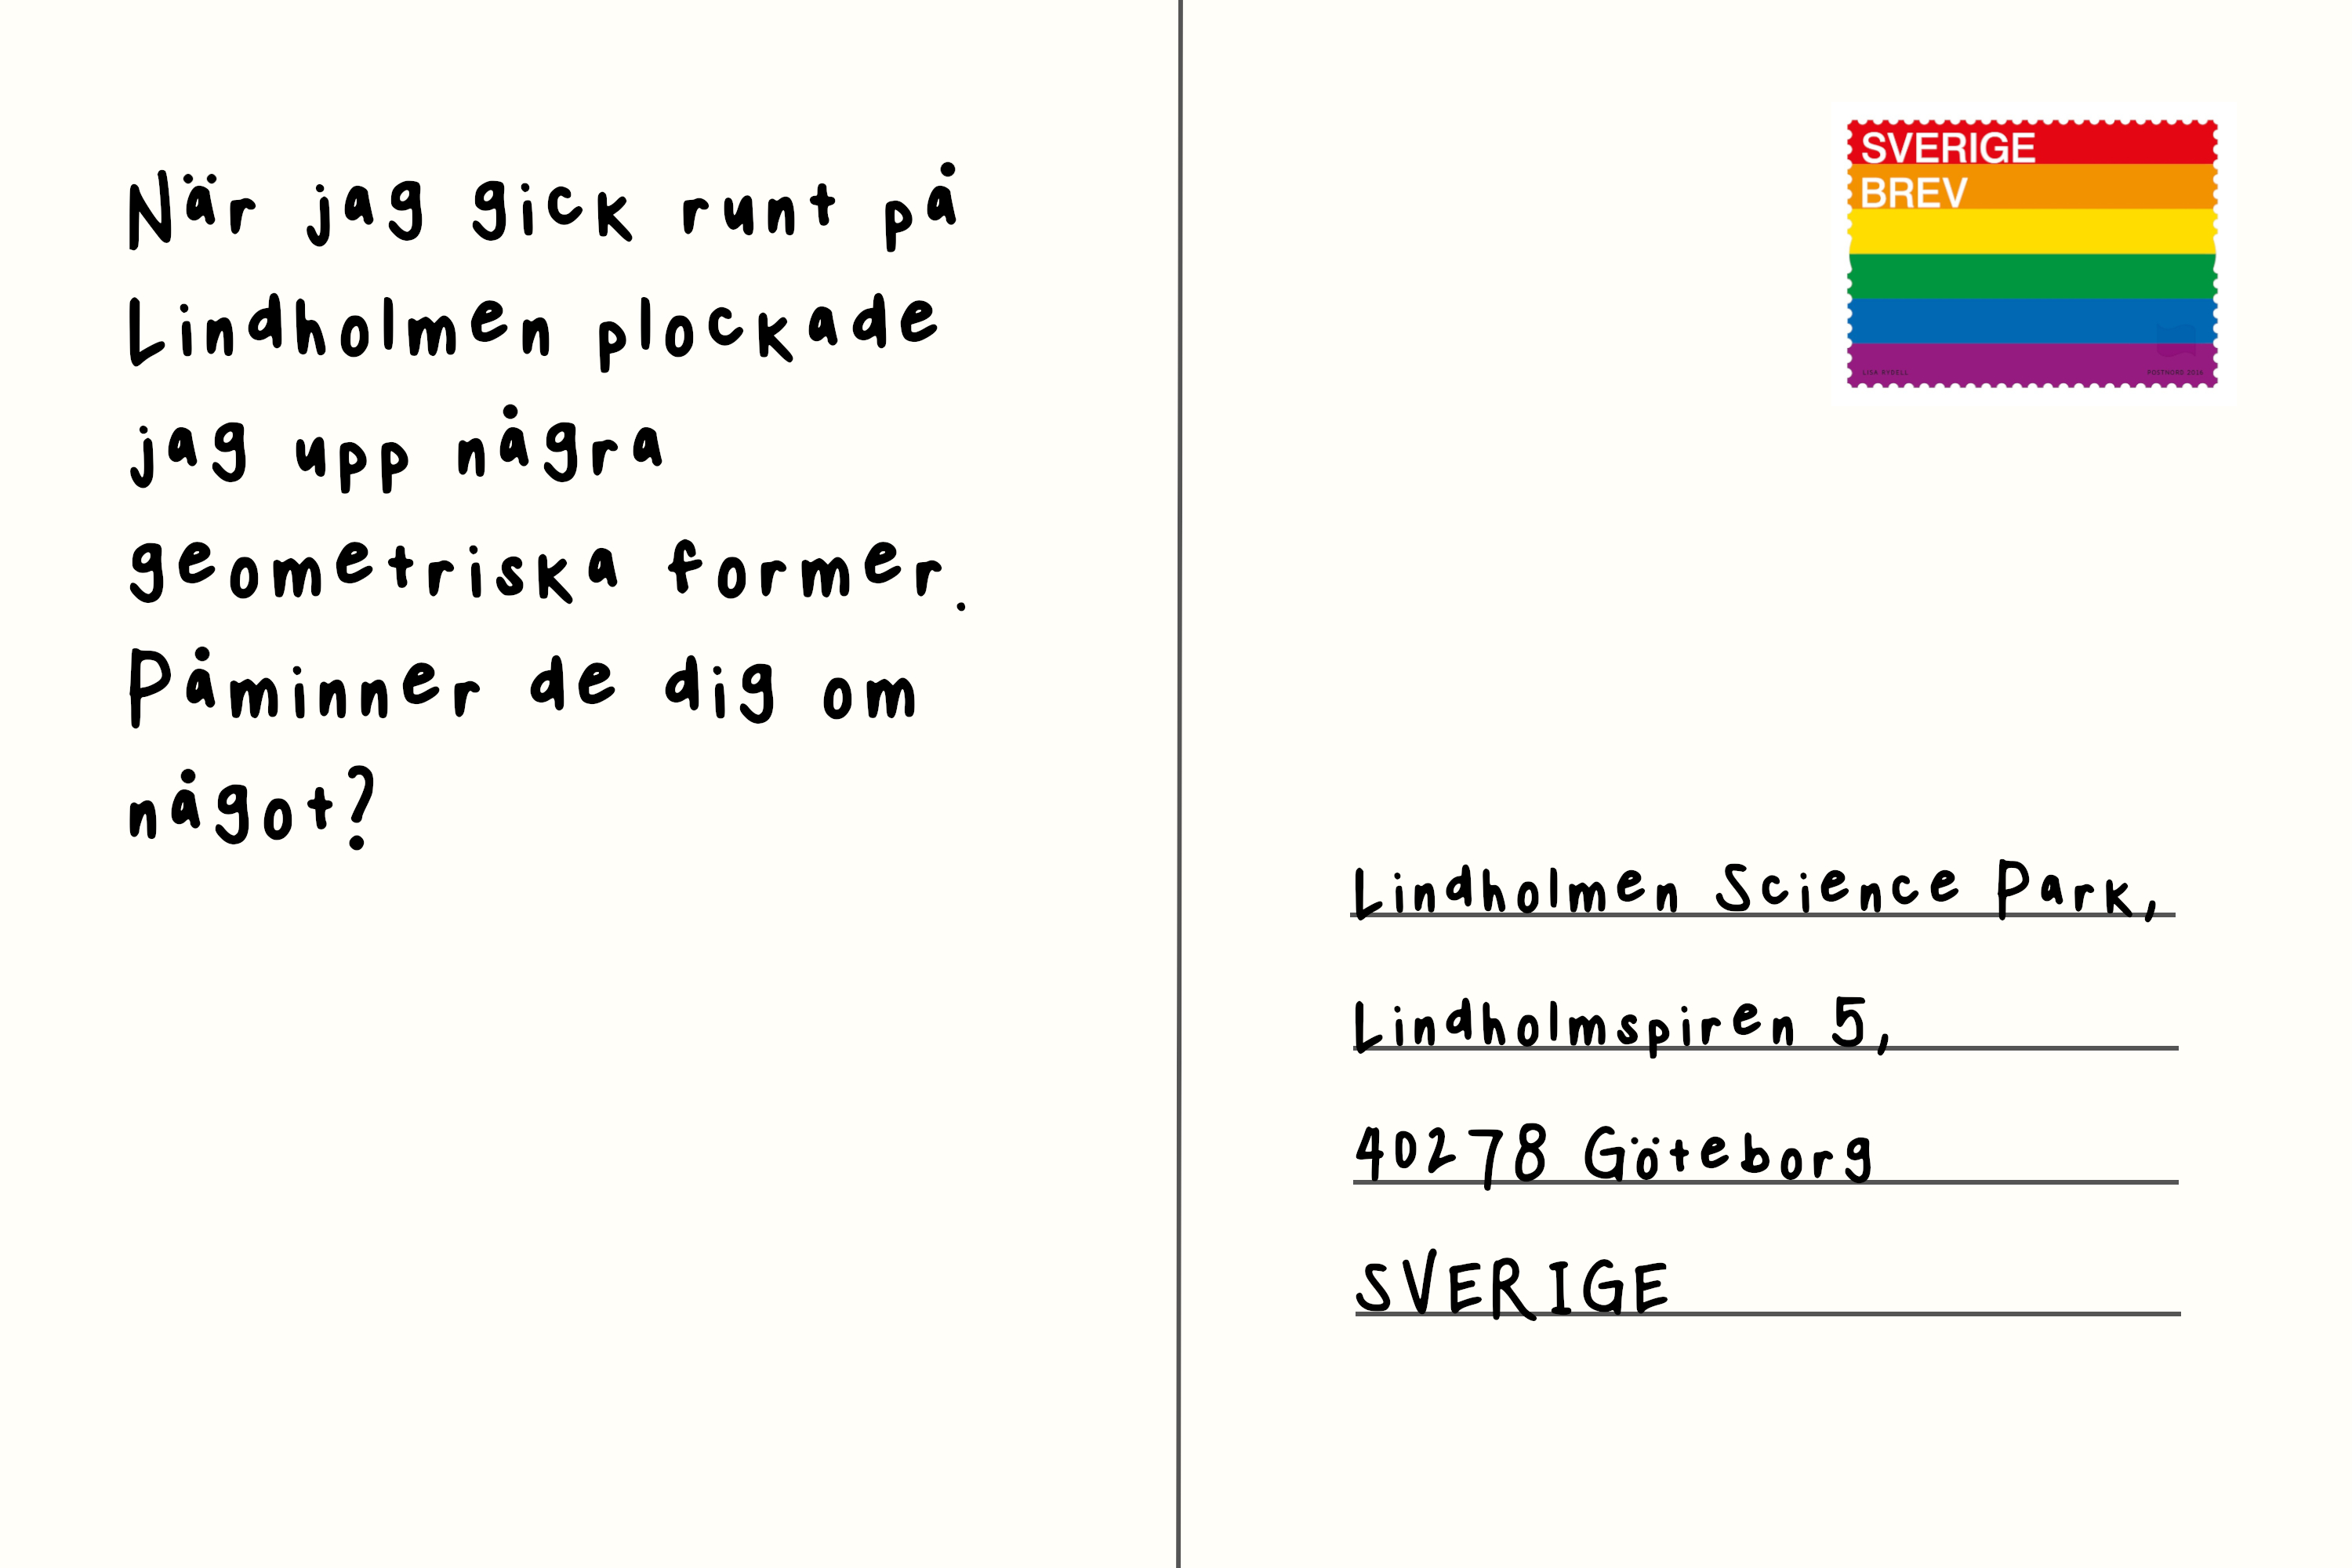 När jag gick runt på
Lindholmen plockade
jag upp några
geometriska former.
Påminner de dig om
något?
SVERIGE
BREV
LISA RYDELL
POSTNORD 2016
Lindholmen Science Park,
Lindholmspiren 5,
40278 Göteborg
SVERIGE